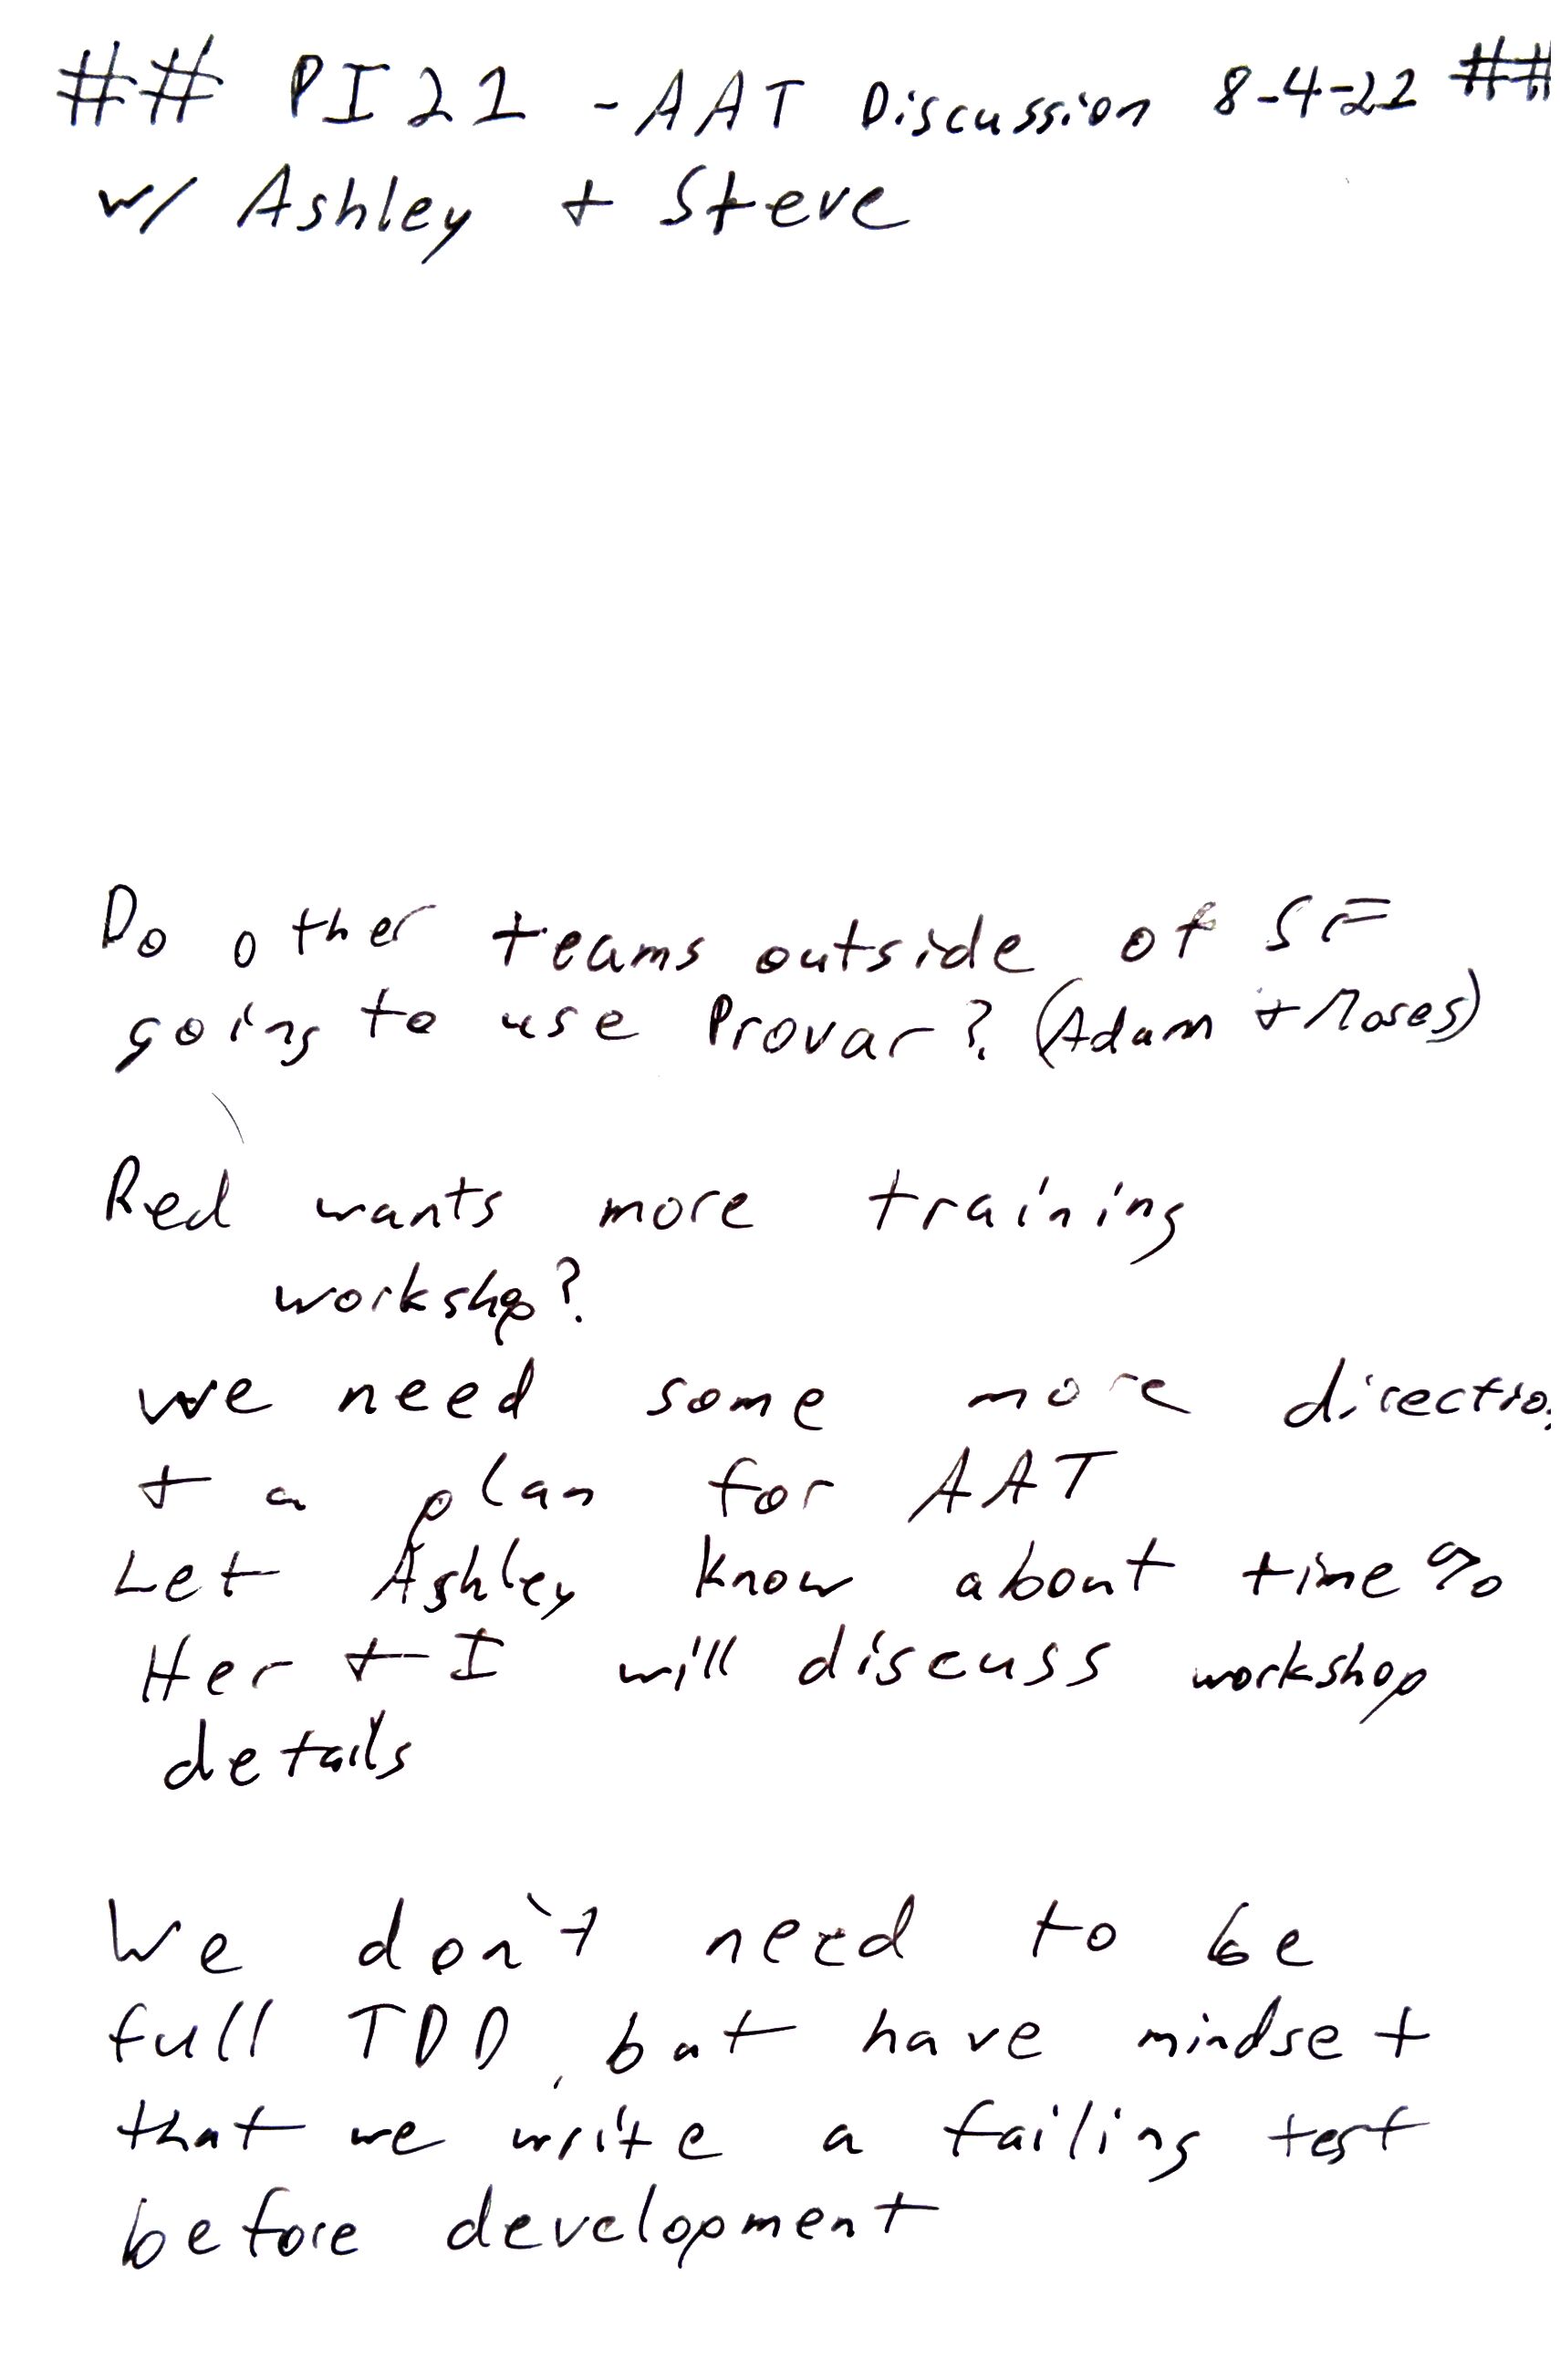 ## PI22 - AAT Discussion 8-4-22 ##
w/ Ashley + Steve
Do other teams outside of SF
going to use Provar? (Adam + Moses)
Red wants more training
workshop?
we need some more directio
+ a plan for AAT
Let Ashley know about time %
Her + I will discuss workshop
details
We don't need to be
full TDD, but have mindset
that we write a failing test
before development